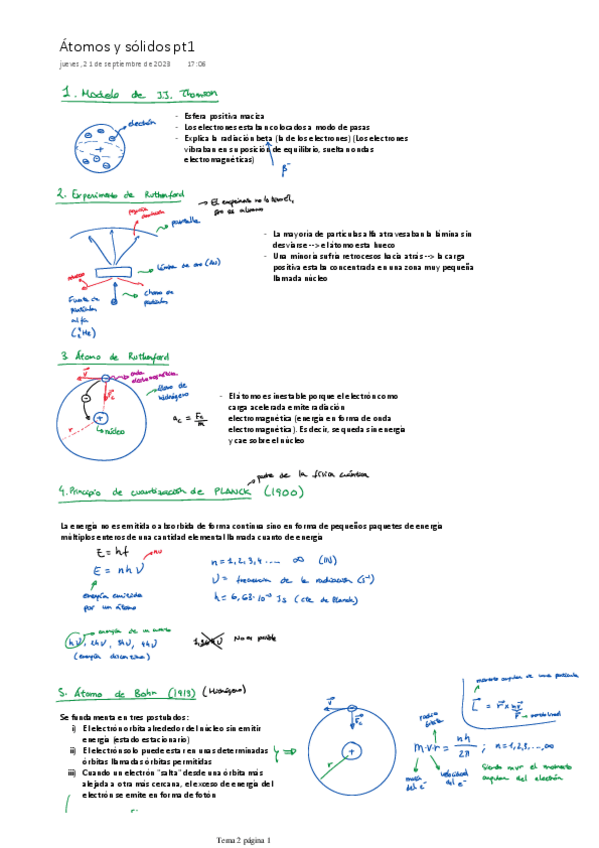 Átomos y sólidos pt1
jueves, 21 de septiembre de 2023 17:06
1. Modelo de J.J. Thomson
electrón
- Esfera positiva maciza
- Los electrones estaban colocados a modo de pasas
- Explica la radiación beta (la de los electrones) (Los electrones
vibraban en su posición de equilibrio, sueltan ondas
electromagnéticas)
β⁻
2. Experimento de Rutherford
→ El experimento no lo
pantalla
Lámina de oro (Au)
Fuente de
partículas
alfa
(⁴₂He)
chorro de
partículas
- La mayoria de particulas alfa atravesaban la lámina sin
desviarse --> el átomo esta hueco
- Una minoría sufría retrocesos hacia atrás --> la carga
positiva estaba concentrada en una zona muy pequeña
llamada núcleo
3. Átomo de Rutherford
onda
electromagnética
átomo de
hidrógeno
v
Fc
r
núcleo
ac = Fc/m
- El átomo es inestable porque el electrón como
carga acelerada emite radiación
electromagnética (energía en forma de onda
electromagnética). Es decir, se queda sin energía
y cae sobre el núcleo
padre de la física cuántica
4. Principio de cuantización de PLANCK (1900)
La energía no es emitida o absorbida de forma continua sino en forma de pequeños paquetes de energía
múltiplos enteros de una cantidad elemental llamada cuanto de energía
E = hf
nu
E = nhν
energía emitida
por un átomo
n = 1, 2, 3, 4 .... ∞ (IN)
ν = frecuencia de la radiación (s⁻¹)
h = 6,63·10⁻³ Js (cte de Planck)
energía de un cuanto
hν, 2hν, 3hν, 4hν
(energía discontinua)
No es posible
5. Átomo de Bohr (1913) (Hidrógeno)
Se fundamenta en tres postulados:
i) El electrón orbita alrededor del núcleo sin emitir
energía (estado estacionario)
ii) El electrón solo puede estar en unas determinadas
órbitas llamadas órbitas permitidas
iii) Cuando un electrón "salta" desde una órbita más
alejada a otra más cercana, el exceso de energía del
electrón se emite en forma de fotón
v
Fc
r
momento angular de una partícula
L = r x mv
radio
órbita
m·v·r = nh/2π ; n = 1, 2, 3, ..., ∞
masa
del e⁻
velocidad
del e⁻
Siendo mvr el momento
angular del electrón
Tema 2 página 1